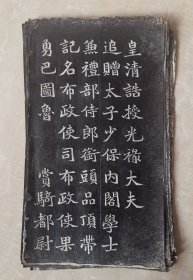 皇清誥授光祿大夫
追贈太子少保內閣學士
兼禮部侍郎銜頭品頂帶
記名布政使司布政使果
勇巴圖魯 賞騎都尉